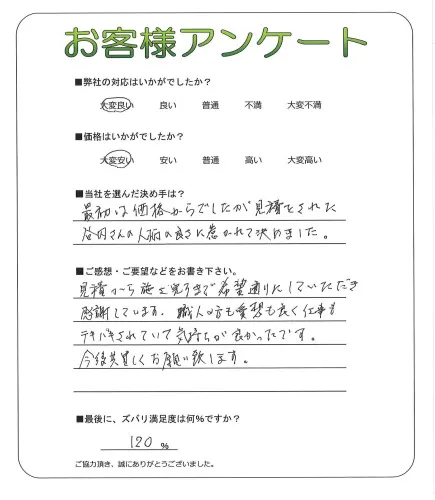 お客様アンケート
■弊社の対応はいかがでしたか？
大変良い 良い 普通 不満 大変不満
■価格はいかがでしたか？
大変安い 安い 普通 高い 大変高い
■当社を選んだ決め手は？
最初は価格からでしたが見積をされた
谷内さんの人柄の良さに惹かれて決めました。
■ご感想・ご要望などをお書き下さい。
見積から施工完了まで希望通りにしていただき
感謝しています。職人の方も愛想も良く仕事も
テキパキされていて気持ちが良かったです。
今後共宜しくお願い致します。
■最後に、ズバリ満足度は何％ですか？
120 %
ご協力頂き、誠にありがとうございました。